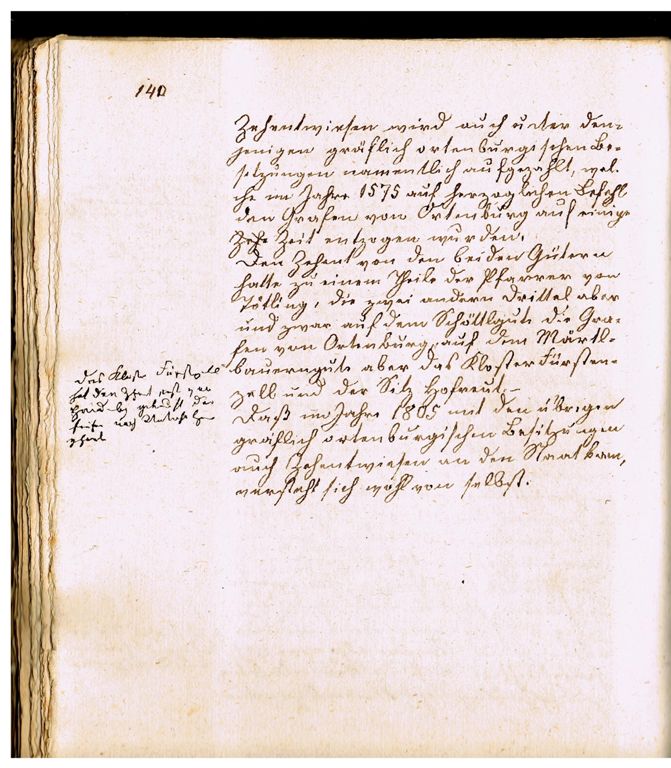 140
Zehentwiesen wird auch unter den-
jenigen gräflich ortenburgischen Be-
sitzungen namentlich aufgezählt, wel-
che im Jahre 1575 auf herzoglichen Befehl
den Grafen von Ortenburg auf einige
Zeit entzogen wurden.
Den Zehent von den beiden Gütern
hatte zu einem Theile der Pfarrer von
Tötling, die zwei andern Drittel aber
und zwar auf dem Schöttlgute die Gra-
fen von Ortenburg, auf dem Märtl-
bauerngute aber das Kloster Fürsten-
zell und der Sitz Hofreut.-
Daß im Jahre 1805 mit den übrigen
gräflich ortenburgischen Besitzungen
auch Zehentwiesen an den Staat kam,
versteht sich wohl von selbst.
Das Kloster Fürstenzell
hat den Zehent erst